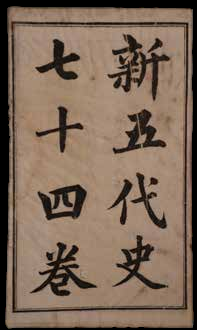 新五代史
七十四卷